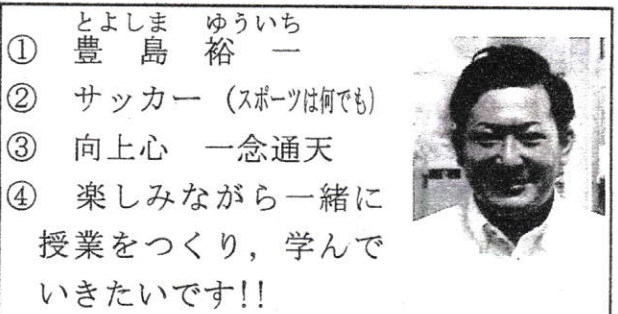 とよしま ゆういち
① 豊島裕一
② サッカー (スポーツは何でも)
③ 向上心 一念通天
④ 楽しみながら一緒に
授業をつくり，学んで
いきたいです!!